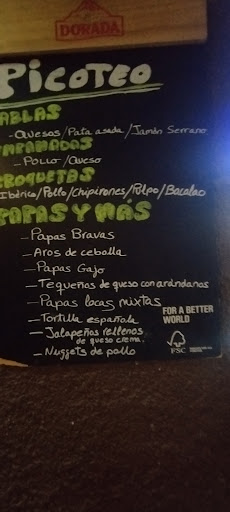 DORADA
PICOTEO
ABLAS
-Quesos/Pata asada/Jamón Serrano
-Pollo/Queso
CROQUETAS
Ibérico/Pollo/Chipirones/Pulpo/Bacalao
PAPAS Y MÁS
-Papas Bravas
-Aros de cebolla
-Papas Gajo
-Tequeños de queso con arándanos
-Papas locas mixtas
FOR A BETTER
WORLD
-Tortilla española
-Jalapeños rellenos
de queso crema.
FSC
-Nuggets de pollo